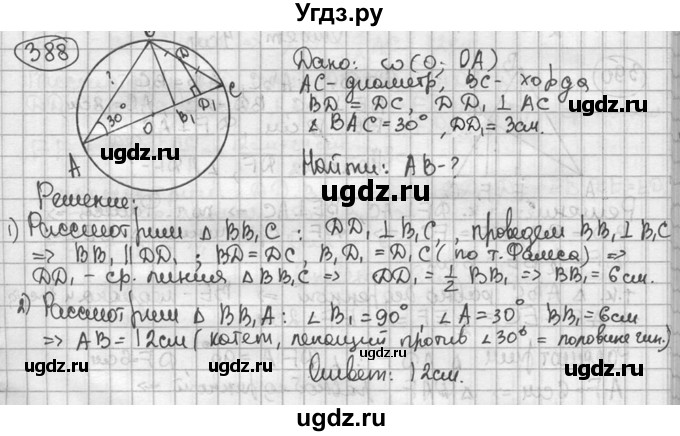 Угдз.ру
388
Дано: ω (O; OA)
AC - диаметр, BC - хорда
BD = DC, DD₁ ⊥ AC
∠ BAC = 30°, DD₁ = 3см.
Найти: AB - ?
B
D
C
?
30°
O
B₁
D₁
A
ugdz.ru
ugdz.ru
ugdz.ru
Решение:
1) Рассмотрим △ BB₁C : DD₁ ⊥ B₁C, проведём BB₁ ⊥ B₁C
⇒ BB₁ ∥ DD₁ ; BD = DC, B₁D₁ = D₁C ( по т. Фалеса) ⇒
DD₁ - ср. линия △ BB₁C ⇒ DD₁ = 1/2 BB₁ ⇒ BB₁ = 6 см.
ugdz.ru
ugdz.ru
2) Рассмотрим △ BB₁A : ∠ B₁ = 90°, ∠ A = 30° BB₁ = 6см
⇒ AB = 12см ( катет, лежащий против ∠30° = половине гип.)
ugdz.ru
ugdz.ru
Ответ: 12см.
ugdz.ru
ugdz.ru